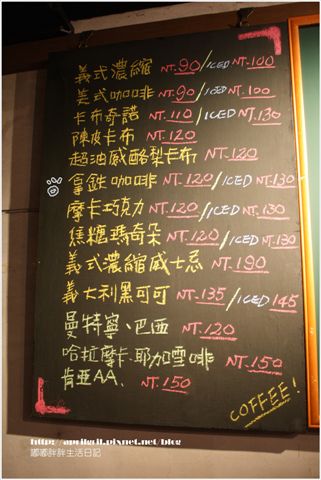 義式濃縮 NT.90/ICED NT.100
美式咖啡 NT.90/ICED NT.100
卡布奇諾 NT.110/ICED NT.130
陳皮卡布 NT.120
超油威酪梨卡布 NT.120
拿鐵咖啡 NT.120/ICED NT.130
摩卡巧克力 NT.120/ICED NT.130
焦糖瑪奇朵 NT.120/ICED NT.130
義式濃縮威士忌 NT.190
義大利黑可可 NT.135/ICED 145
曼特寧、巴西 NT.120
哈拉摩卡、耶加雪啡 NT.150
肯亞AA、 NT.150
COFFEE!
http://aprilgil.pixnet.net/blog
嘟嘟胖胖生活日記